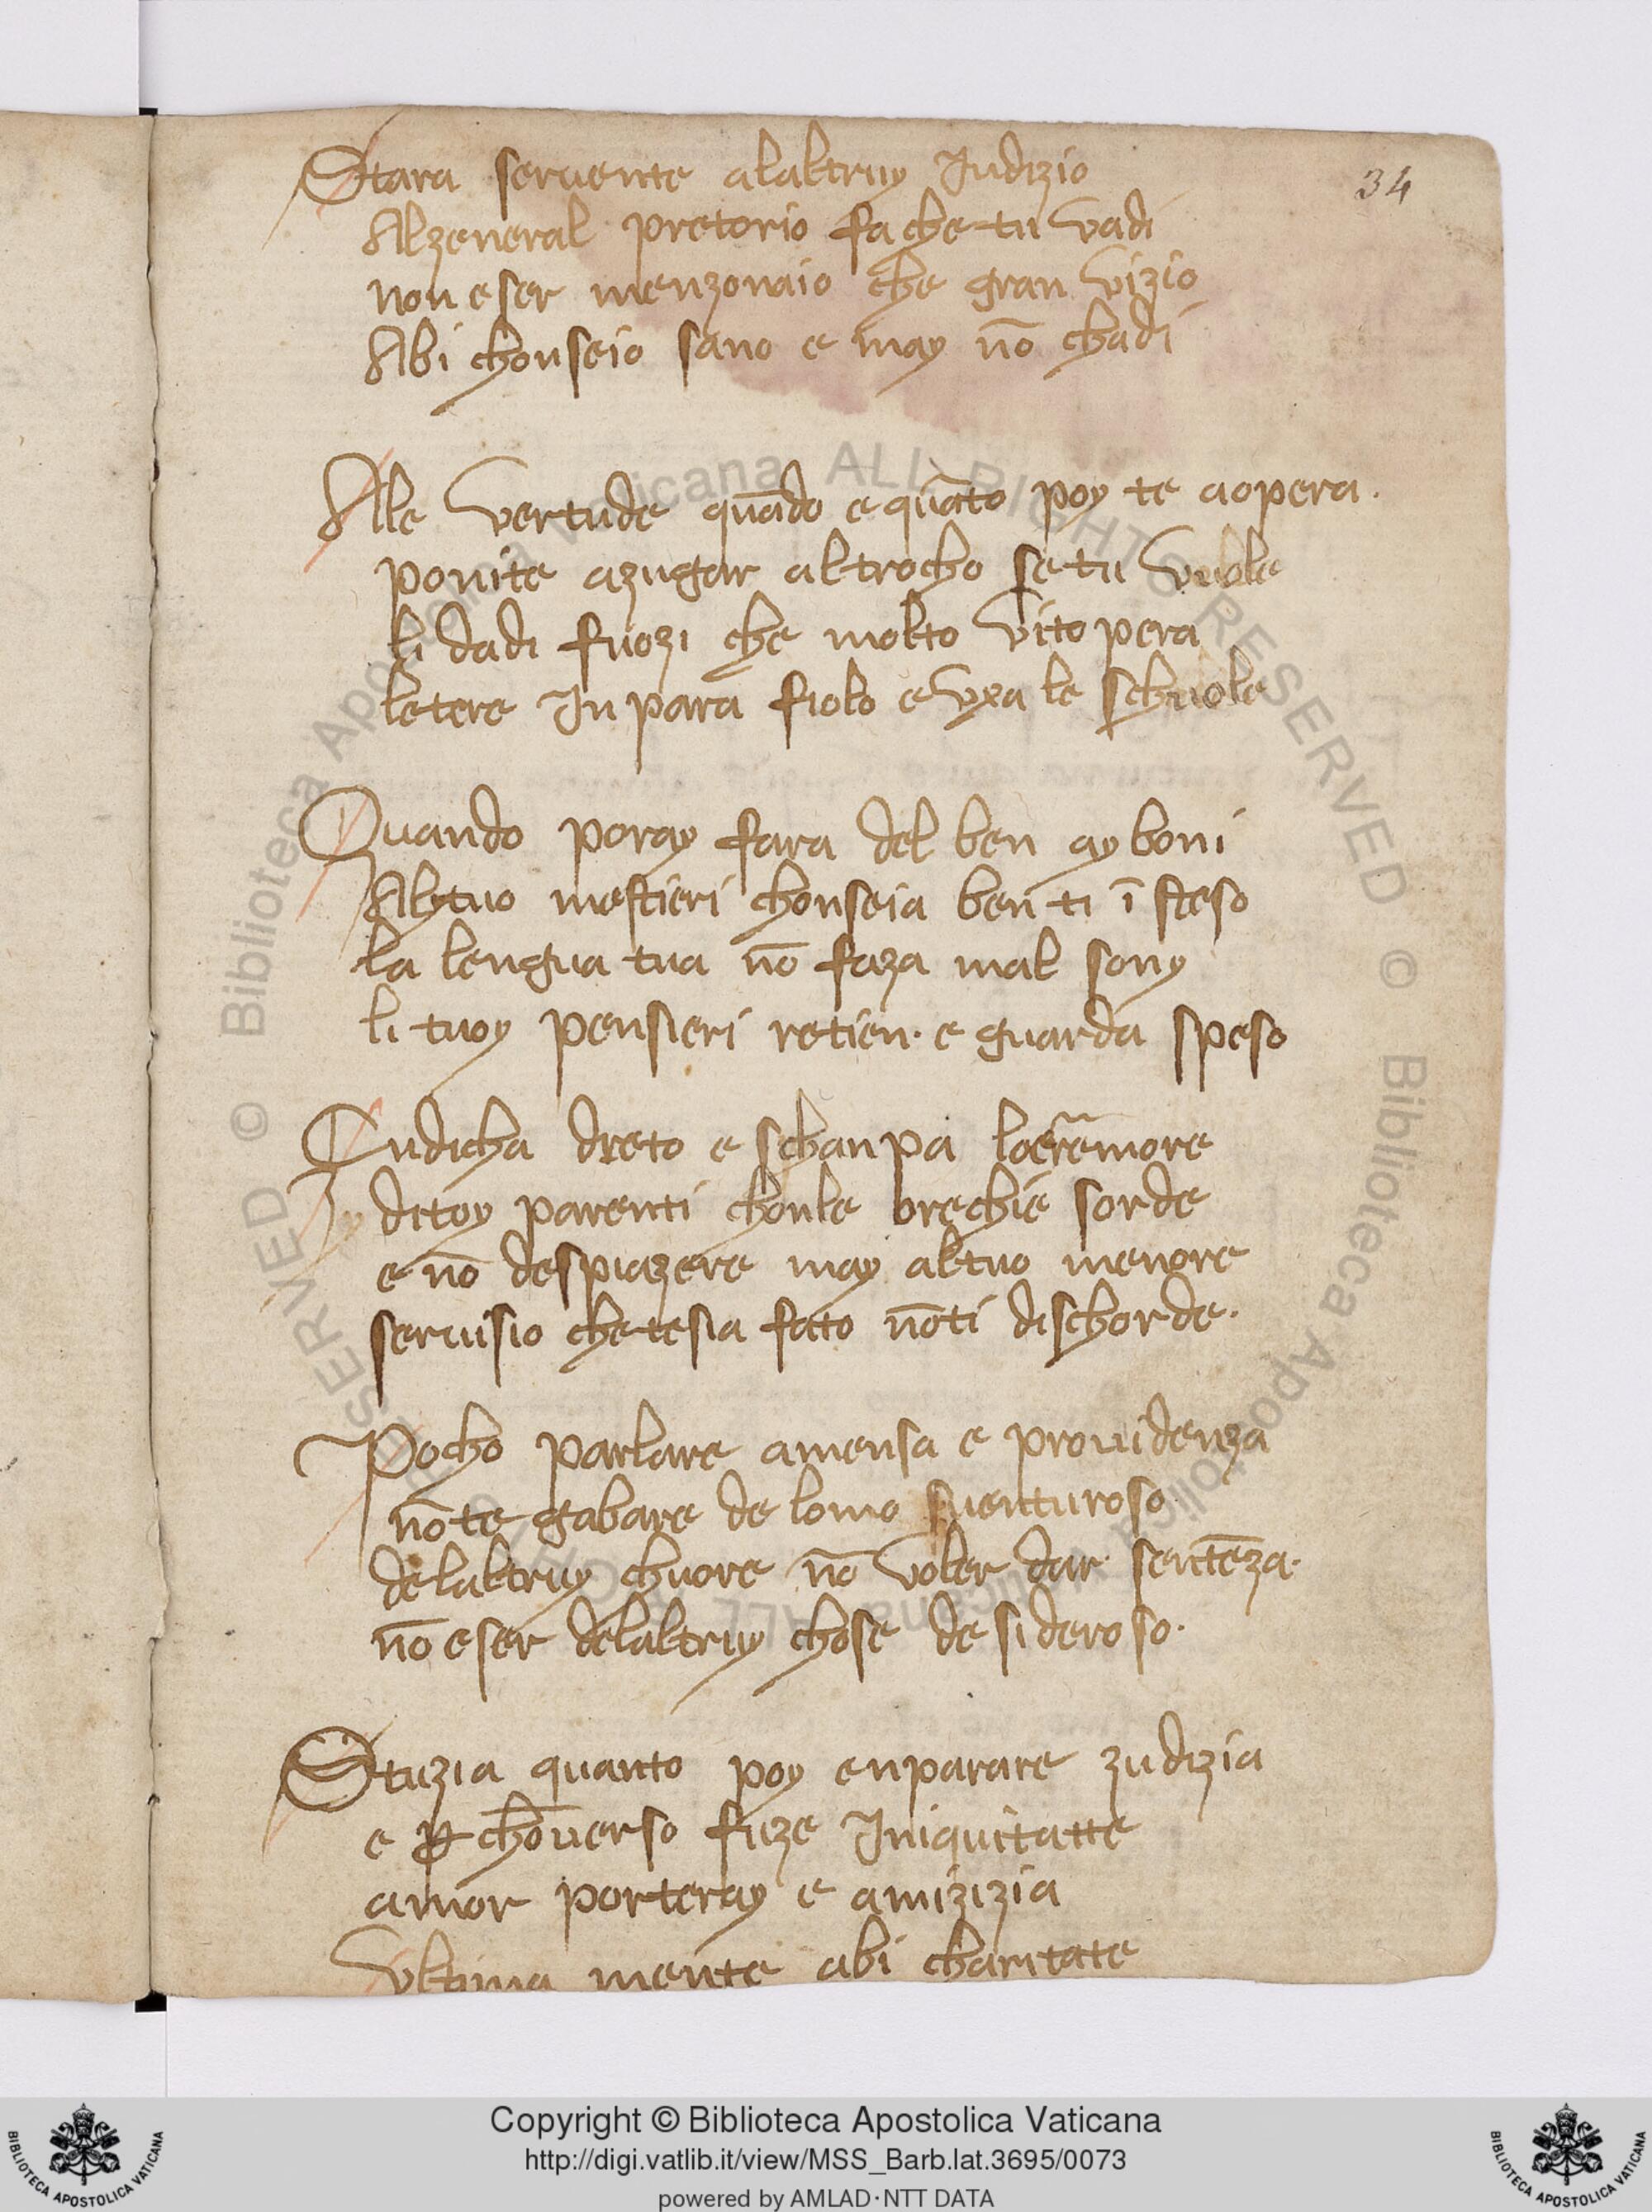 34
Stara seruente alaltruy Iudizio
Alzeneral pretorio fa che tu vadi
non eser menzonaio che gran vizio
Abi chonseio sano e may nō chadi
Ale vertude quādo e quāto poy te aopera.
ponite azugar altrocho se tu vuole
li dadi fuozi che molto vitopera
letere In para fiolo e vxa le schuole
Quando poray fara del ben ay boni
Aly tuo mestieri chonseia ben ti ī steso
la lengua tua nō faza mal sony
li tuoy pensieri retien. e guarda speso
Iudicha dreto e schanpa
y ditoy parenti chonle orechie sorde
e nō despiazere may altuo menore
seruisio che te sia fato nōti dischorde.
Pocho parlare amensa e prouidenza
nōte gabare de lomo suenturoso
delaltruy chuore nō voler dar sentēza.
nō eser delaltruy chose desideroso.
Stuzia quanto poy enparare zudizia
e ꝑ chōuerso fuze Iniquitatte
amor porteray e amizizia
vltima mente abi charitate
Copyright © Biblioteca Apostolica Vaticana
http://digi.vatlib.it/view/MSS_Barb.lat.3695/0073
powered by AMLAD·NTT DATA
BIBLIOTECA APOSTOLICA VATICANA
BIBLIOTECA APOSTOLICA VATICANA